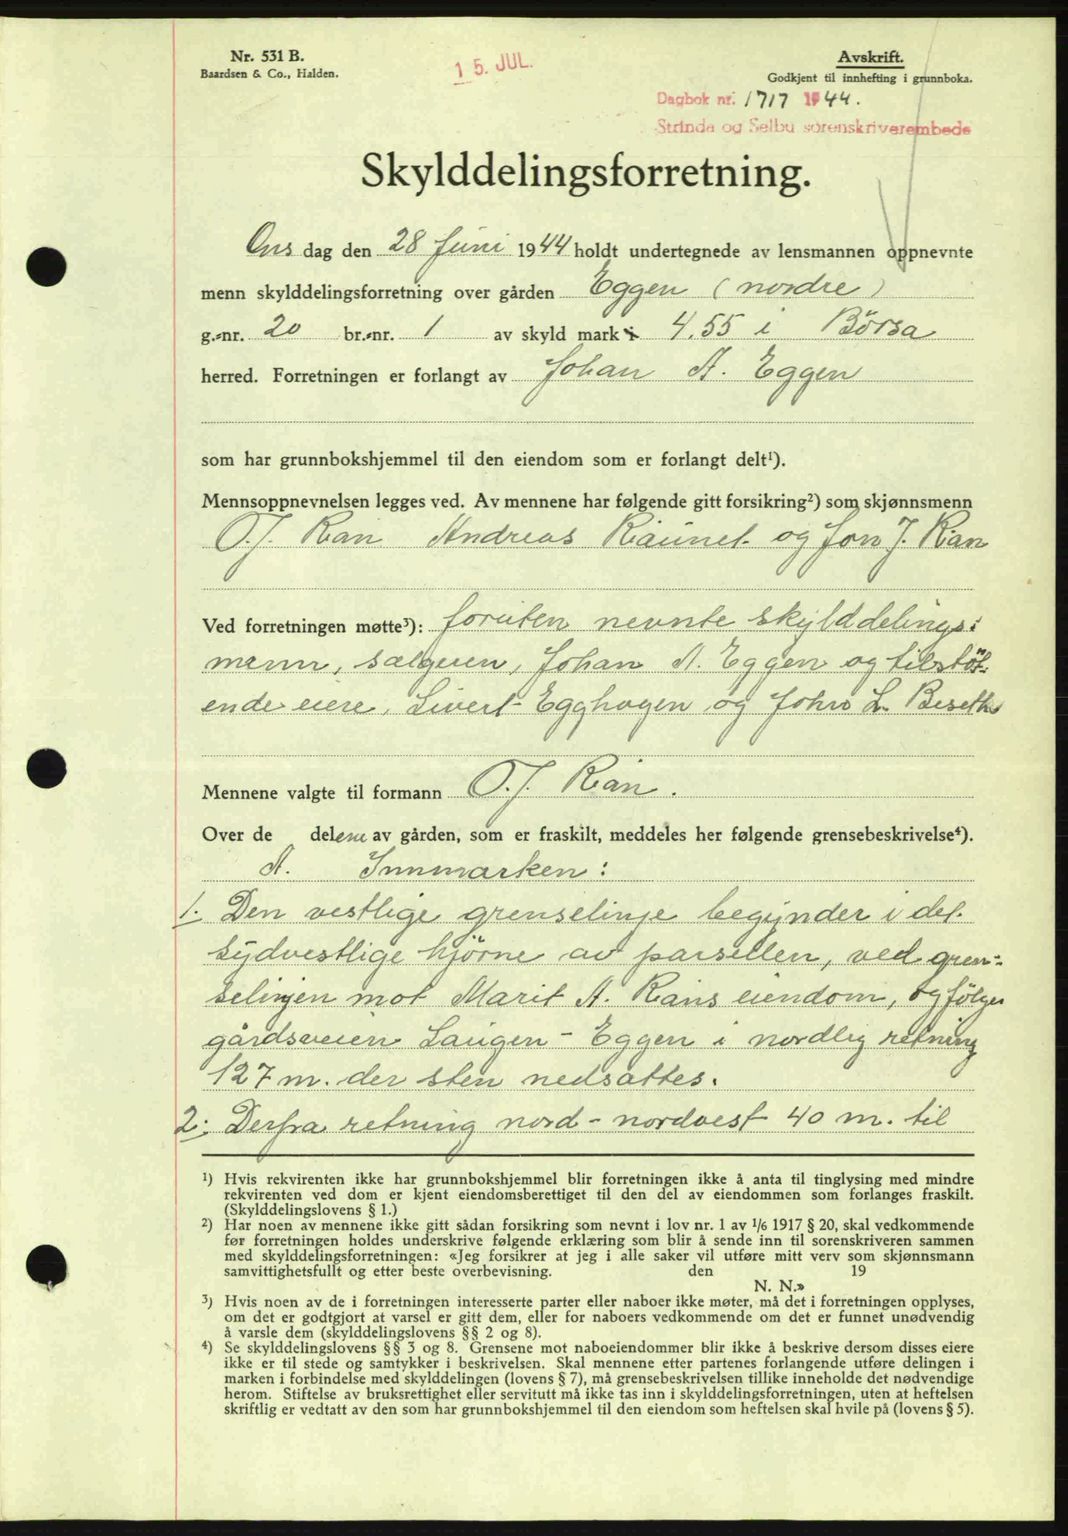 Nr. 531 B.
Baardsen & Co., Halden.
15. JUL.
Avskrift.
Godkjent til innhefting i grunnboka.
Dagbok nr. 1717 1944.
Strinda og Selbu sorenskriverembede
Skylddelingsforretning.
Onsdag den 28 Juni 1944 holdt undertegnede av lensmannen oppnevnte
menn skylddelingsforretning over gården Eggen (nordre)
g.-nr. 20 br.-nr. 1 av skyld mark 4.55 i Börsa
herred. Forretningen er forlangt av Johan A. Eggen
som har grunnbokshjemmel til den eiendom som er forlangt delt¹).
Mennsoppnevnelsen legges ved. Av mennene har følgende gitt forsikring²) som skjønnsmenn
O.J. Rian Andreas Raunet og Jon J. Rian
Ved forretningen møtte³): foruten nevnte skylddelings-
menn, sælgeren, Johan A. Eggen og tilstöt-
ende eiere, Sivert Egghagen og John L. Beseth
Mennene valgte til formann O.J. Rian.
Over de delene av gården, som er fraskilt, meddeles her følgende grensebeskrivelse⁴).
A. Innmarken:
1. Den vestlige grenselinje begynder i det
sydvestlige hjörne av parsellen, ved gren-
selinjen mot Marit A. Rians eiendom, og fölger
gårdsveien Laugen - Eggen i nordlig retning
127 m. der sten nedsattes.
2. Derfra retning nord - nordvest 40 m. til
¹) Hvis rekvirenten ikke har grunnbokshjemmel blir forretningen ikke å anta til tinglysing med mindre
rekvirenten ved dom er kjent eiendomsberettiget til den del av eiendommen som forlanges fraskilt.
(Skylddelingslovens § 1.)
²) Har noen av mennene ikke gitt sådan forsikring som nevnt i lov nr. 1 av 1/6 1917 § 20, skal vedkommende
før forretningen holdes underskrive følgende erklæring som blir å sende inn til sorenskriveren sammen
med skylddelingsforretningen: «Jeg forsikrer at jeg i alle saker vil utføre mitt verv som skjønnsmann
samvittighetsfullt og etter beste overbevisning. den 19
N. N.»
³) Hvis noen av de i forretningen interesserte parter eller naboer ikke møter, må det i forretningen opplyses,
om det er godtgjort at varsel er gitt dem, eller for naboers vedkommende om det er funnet unødvendig
å varsle dem (skylddelingslovens §§ 2 og 8).
⁴) Se skylddelingslovens §§ 3 og 8. Grensene mot naboeiendommer blir ikke å beskrive dersom disses eiere
ikke er til stede og samtykker i beskrivelsen. Skal mennene etter partenes forlangende utføre delingen i
marken i forbindelse med skylddelingen (lovens § 7), må grensebeskrivelsen tillike inneholde det nødvendige
herom. Stiftelse av bruksrettighet eller servitutt må ikke tas inn i skylddelingsforretningen, uten at heftelsen
skriftlig er vedtatt av den som har grunnbokshjemmel til den eiendom som heftelsen skal hvile på (lovens § 5).